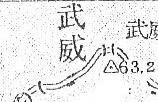 武威
武威
63,2